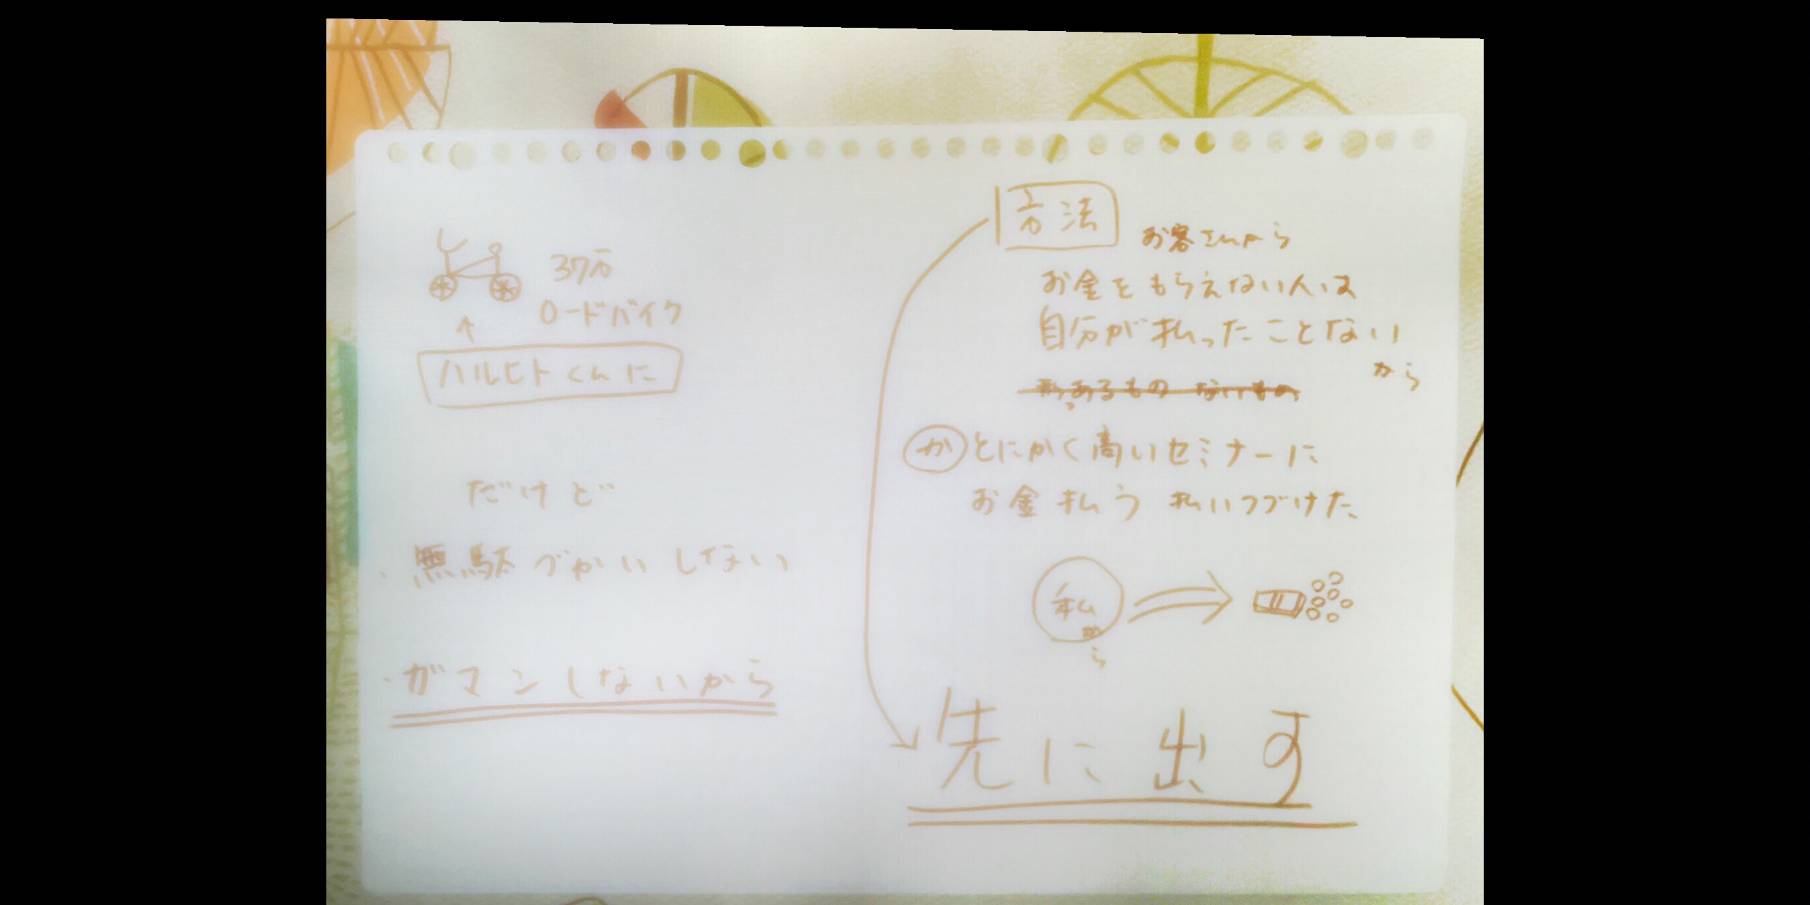 37万
ロードバイク
ハルヒトくんに
だけど
・無駄づかいしない
・ガマンしないから
方法
お客さんから
お金をもらえない人は
自分が払ったことない
から
あるもの ないもの
か とにかく高いセミナーに
お金払う 払いつづけた
私
から
先に出す